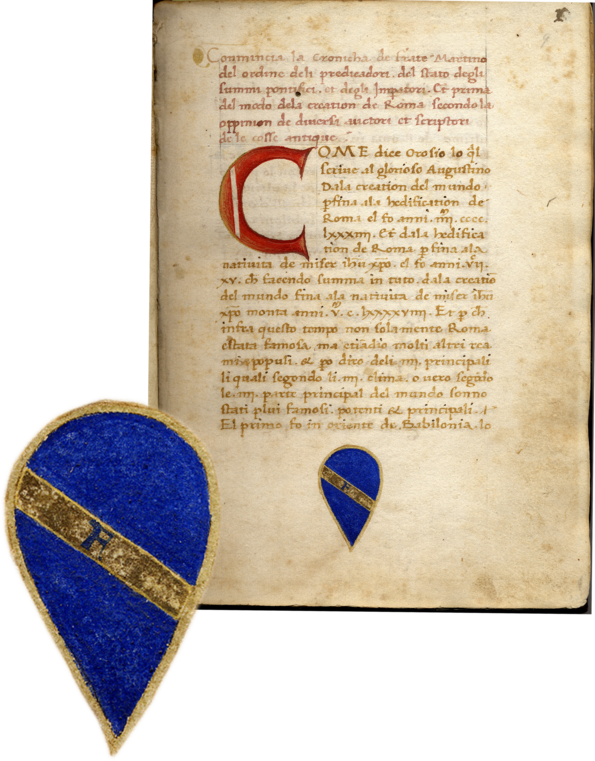 Comincia la Cronicha de frate Martino
del ordine deli predicadori. del stato degli
summi pontifici. et degli Imperatori. Et prima
del modo dela creation de Roma secondo la
oppinion de diversi auctori et scriptori
de le cosse antique.
COME dice Orosio lo q̄l
scrive al glorioso Augustino
Dala creation del mundo.
ꝑfina ala hedification de
Roma el fo anni. m̄. cccc.
lxxxiiii. Et dala hedifica
tion de Roma ꝑfina ala
nativita de miser ihū xp̄o. el fo anni. vii.
xv. ch̄ facendo summa in tuto. dala creatiō
del mundo fina ala nativita de miser ihū
xp̄o monta anni. v̄. c. lxxxxviiii. Et ꝑ ch̄
infra questo tempo non solamente Roma
estata famosa. ma etiādio molti altri rea
mi & popusi. & ꝑo diro deli. iiii. principali
li quali segondo li. iiii. clima. o vero segōdo
le. iiii. parte principal del mundo sonno
stati plui famosi. potenti & principali.
El primo fo in oriente de Babilonia. lo
H